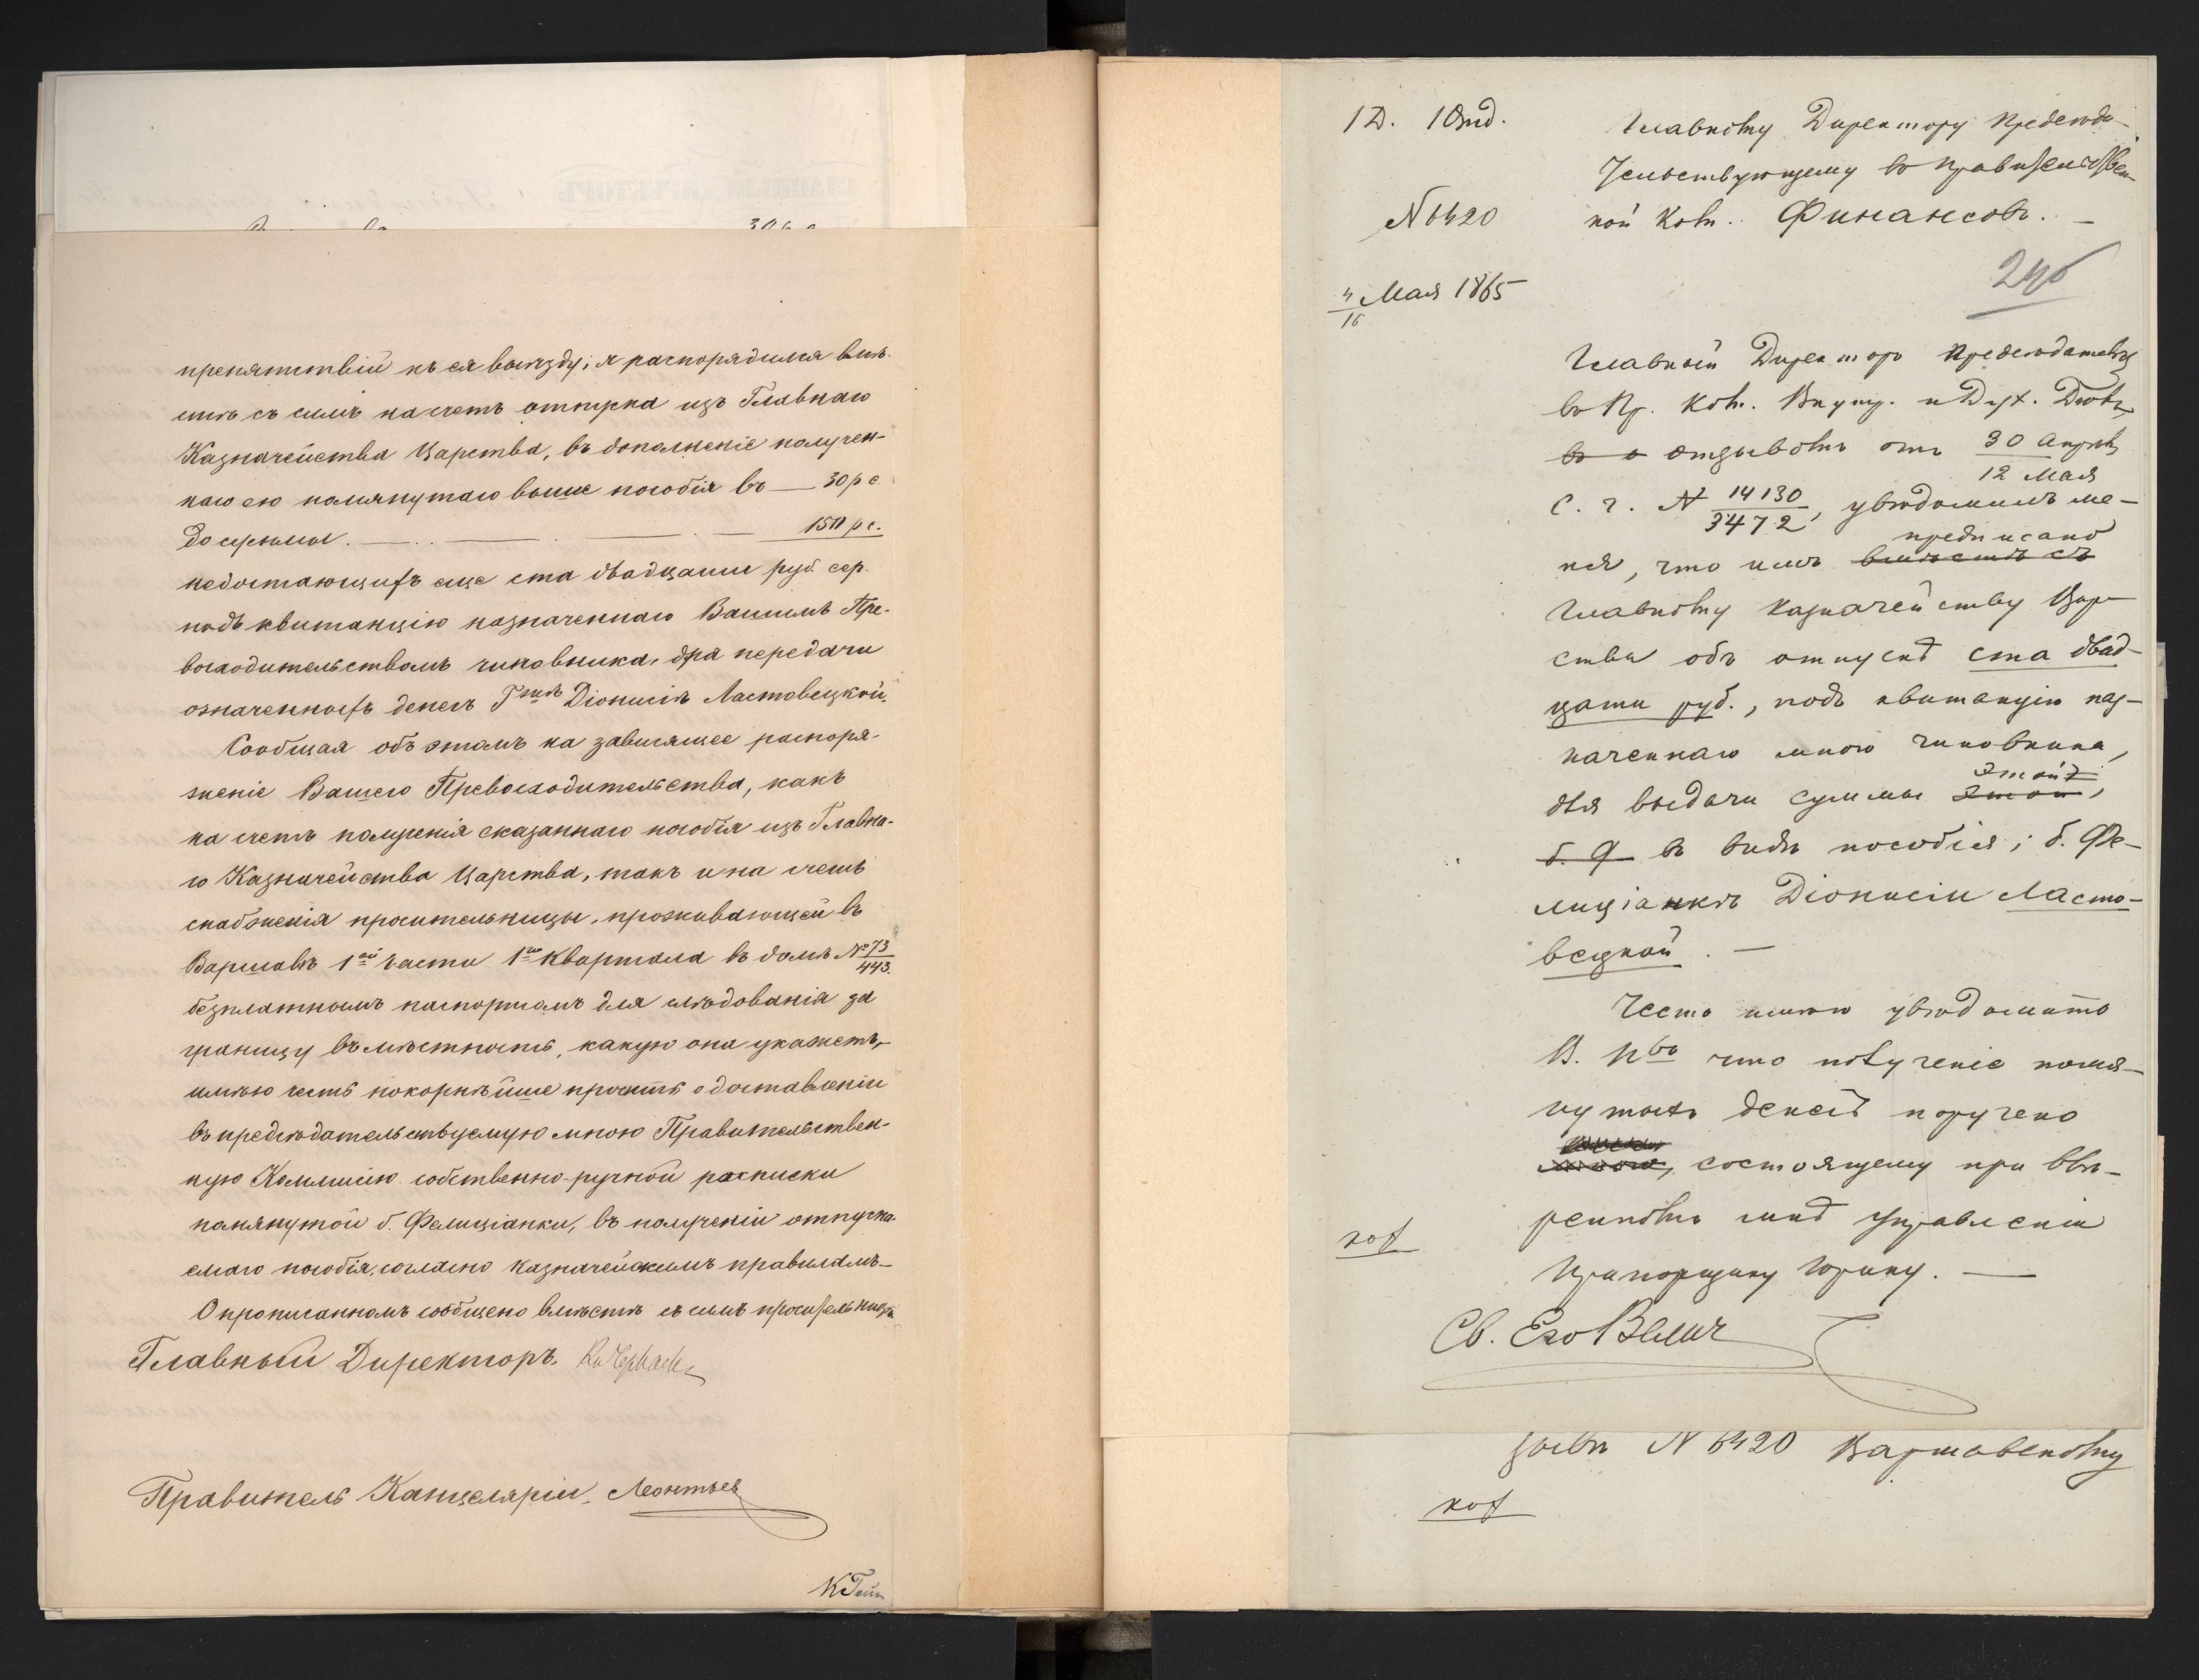 препятствій къ ея выѣзду; я распорядился вмѣ-
стѣ съ симъ на счетъ отпуска изъ Главнаго
Казначейства Царства, въ дополненіе получен-
наго ею помянутаго выше пособія въ — 30 р с
до суммы. — . . — . — . — 150 р с.
недостающихъ еще ста двадцати руб. сер.
подъ квитанцію назначеннаго Вашимъ Пре-
восходительствомъ чиновника, для передачи
означенныхъ денегъ Гжѣ Діонисіѣ Ластовецкой.
Сообщая объ этомъ на зависящее распоря-
женіе Вашего Превосходительства, какъ
на счетъ полученія сказаннаго пособія изъ Главна-
го Казначейства Царства, такъ и на счетъ
снабженія просительницы, проживающей въ
Варшавѣ 1ой части 1го квартала въ домѣ № 73/443.
безплатнымъ паспортомъ для слѣдованія за
границу въ мѣстность, какую она укажетъ,
имѣю честь покорнѣйше просить о доставленіи
въ предсѣдательствуемую мною Правительствен-
ную Коммисію собственно-ручной расписки
помянутой б. Фелиціанки, въ полученіи отпуска-
емаго пособія, согласно казначейскимъ правиламъ.
О прописанномъ сообщено вмѣстѣ съ симъ просительницѣ.
Главный Директоръ.
Правитель Канцеляріи, Леонтьев
1 Д. 1 Отд.
Главному Директору Предсѣда-
тельствующему въ Правительствен-
№ 6420
ной Ком. Финансовъ. —
4/16 Мая 1865
Главный Директоръ Предсѣдательств
въ Пр. Ком. Внутр. и Дух. Дѣлъ
отзывомъ отъ 30 Апрѣля / 12 Мая
с. г. № 14130/3472, увѣдомилъ ме-
предписано
ня, что имъ вмѣстѣ съ
Главному Казначейству Цар-
ства объ отпускѣ ста двад-
цати руб., подъ квитанцію наз-
наченнаго мною чиновника,
этой
для выдачи суммы этой,
б. Ф въ видѣ пособія; б. Фе-
лиціанкѣ Діонисіи Ласто-
вецкой. —
Честь имѣю увѣдомить
В. Пво что полученіе помя-
нутыхъ денегъ поручено
состоящему при ввѣ-
ренномъ мнѣ Управленіи
Прапорщику Юрину. —
Св. Его Велич
№ 6420 Варшавскому